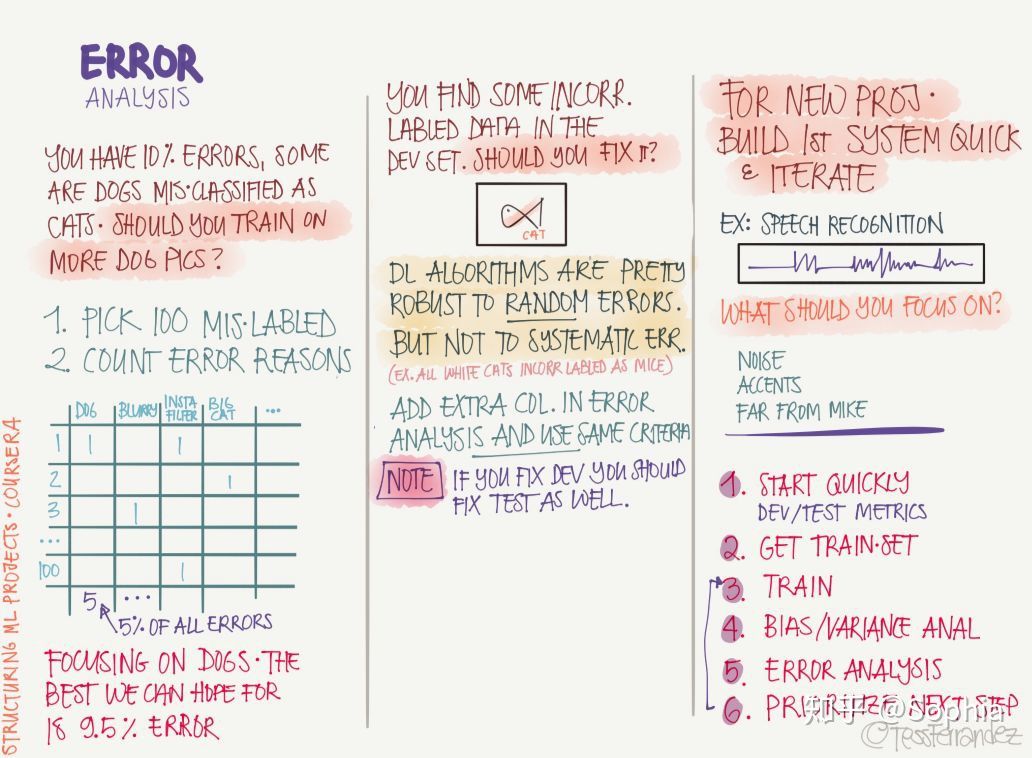 ERROR
ANALYSIS
YOU HAVE 10% ERRORS, SOME
ARE DOGS MIS·CLASSIFIED AS
CATS· SHOULD YOU TRAIN ON
MORE DOG PICS?
1. PICK 100 MIS·LABLED
2. COUNT ERROR REASONS
DOG BLURRY INSTA FILTER BIG CAT ...
1 1 1
2 1
3 1
...
100 1
5 ...
5% OF ALL ERRORS
FOCUSING ON DOGS·THE
BEST WE CAN HOPE FOR
IS 9.5% ERROR
STRUCTURING ML PROJECTS · COURSERA
YOU FIND SOME INCORR.
LABLED DATA IN THE
DEV SET. SHOULD YOU FIX IT?
CAT
DL ALGORITHMS ARE PRETTY
ROBUST TO RANDOM ERRORS.
BUT NOT TO SYSTEMATIC ERR.
(EX. ALL WHITE CATS INCORR LABLED AS MICE)
ADD EXTRA COL. IN ERROR
ANALYSIS AND USE SAME CRITERIA
NOTE IF YOU FIX DEV YOU SHOULD
FIX TEST AS WELL.
FOR NEW PROJ·
BUILD 1st SYSTEM QUICK
& ITERATE
EX: SPEECH RECOGNITION
WHAT SHOULD YOU FOCUS ON?
NOISE
ACCENTS
FAR FROM MIKE
1. START QUICKLY
DEV/TEST METRICS
2. GET TRAIN·SET
3. TRAIN
4. BIAS/VARIANCE ANAL
5. ERROR ANALYSIS
6. PRIORITIZE NEXT STEP
知乎 @Sophia
@TessFerrandez